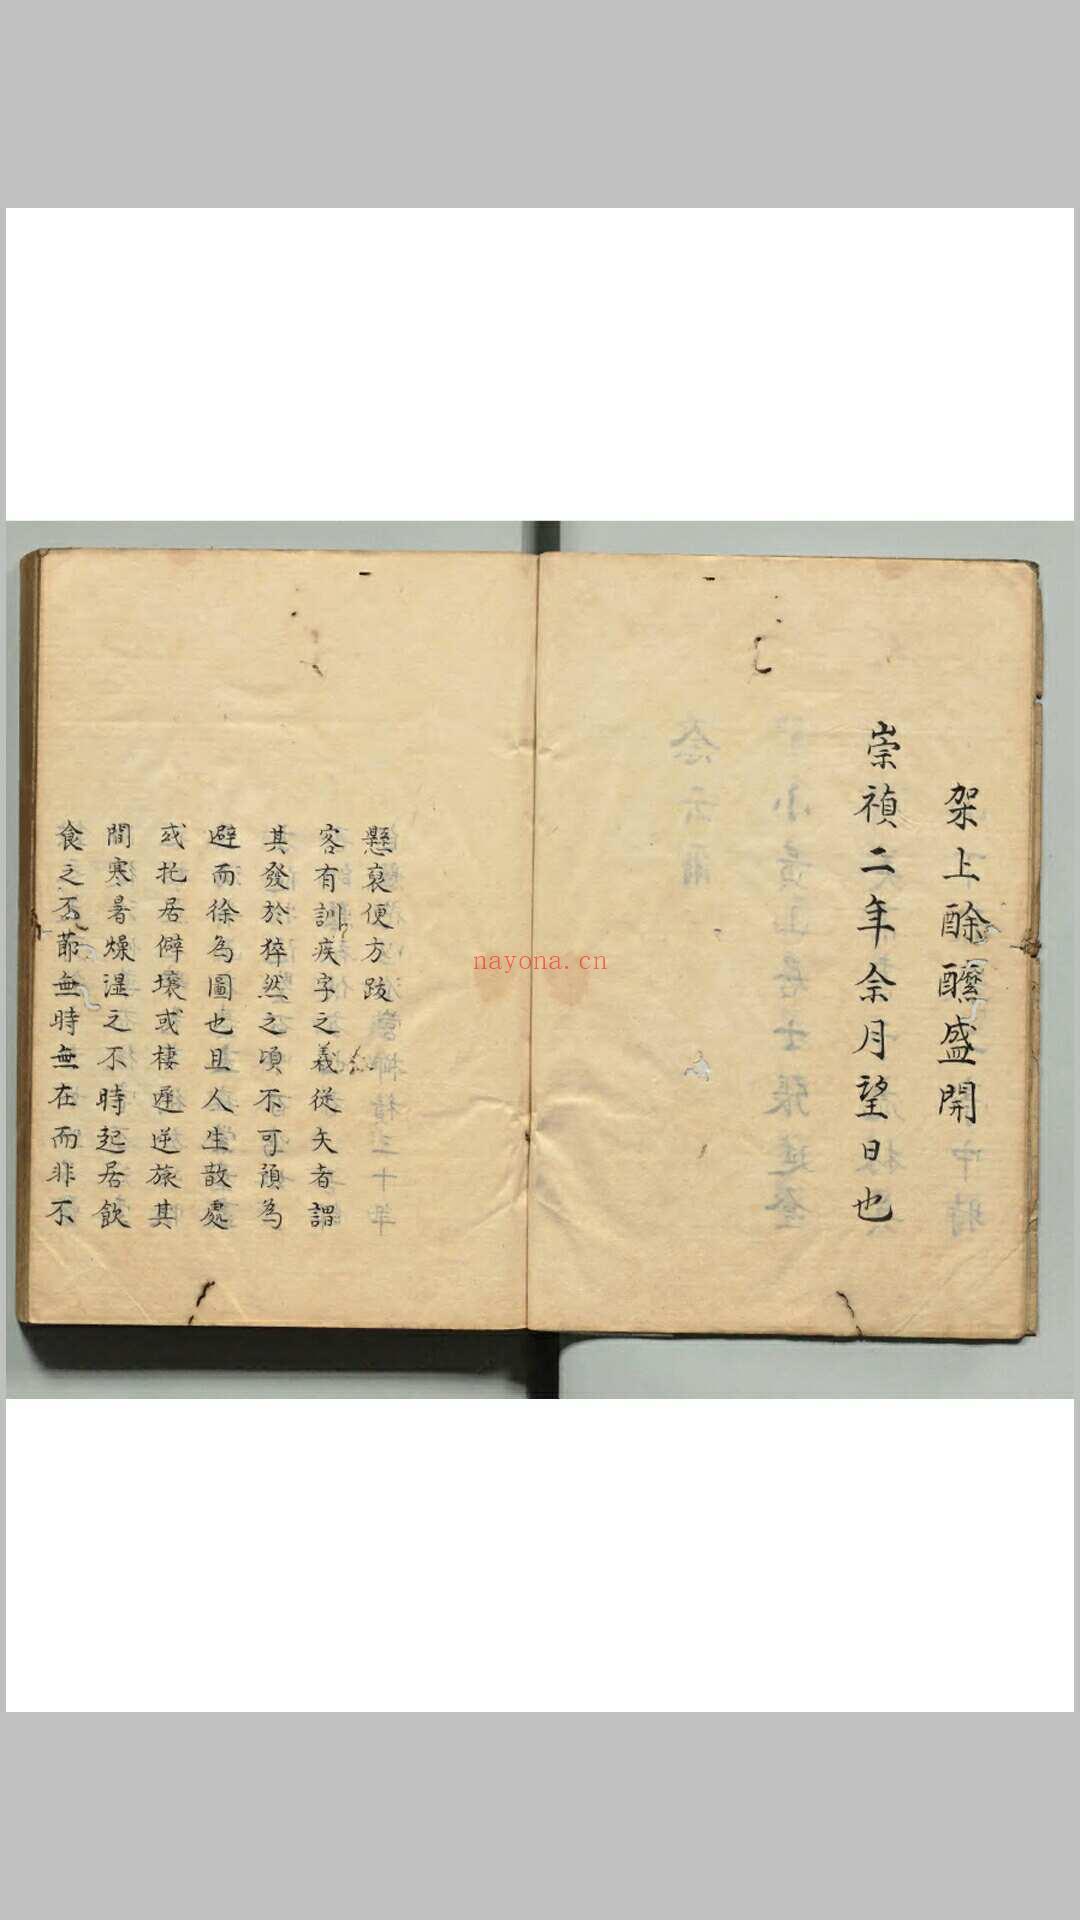 架上酴醿盛開
崇禎二年余月望日也
懸袞便方跋
客有訓疾字之義從矢者謂
其發於猝然之頃不可預為
避而徐為圖也且人生散處
或托居僻壤或棲遲逆旅其
間寒暑燥溼之不時起居飲
食之不節無時無在而非不
nayona.cn